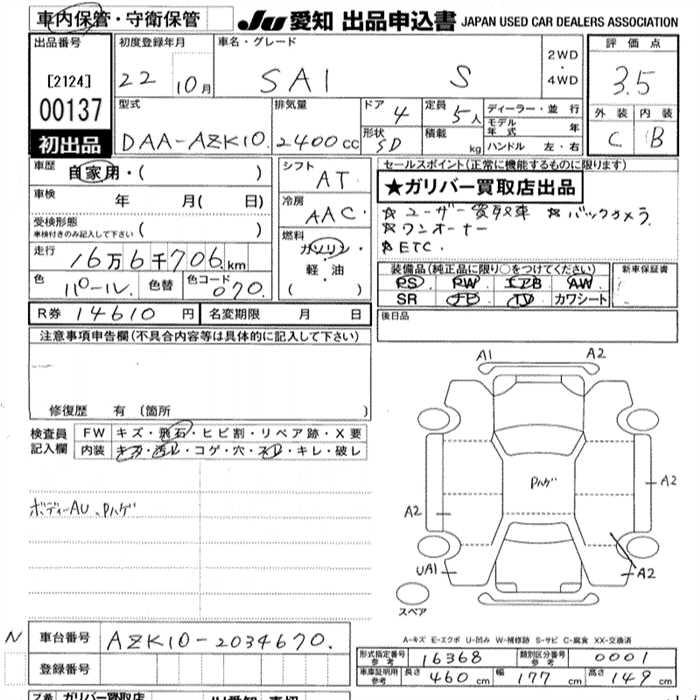 車内保管・守衛保管 JU 愛知 出品申込書 JAPAN USED CAR DEALERS ASSOCIATION
出品番号 初度登録年月 車名・グレード 評価点
[2124] 22 10月 SAI S 2WD・4WD 3.5
00137 型式 排気量 ドア 4 定員 5人 ディーラー・並行 外装 内装
モデル年式 年 C B
初出品 DAA-AZK10. 2400cc 形状 SD 積載 kg ハンドル 左・右
車歴 自家用・( ) シフト AT セールスポイント(正常に機能するものに限ります)
★ガリバー買取店出品
車検 年 月( 日) 冷房 AAC ☆ユーザー買取車 ☆バックカメラ
受検形態 車検付きのみ記入して下さい ( ) ☆ワンオーナー
走行 16万6千706km 燃料 ガソリン・軽油 ( ) ☆ETC.
色 パール 色替 色コード 070. 装備品(純正品に限り○をつけてください) 新車保証書
PS PW エアB AW
SR ナビ TV カワシート
R券 14610円 名変期限 月 日 後日品
注意事項申告欄(不具合内容等は具体的に記入して下さい)
修復歴 有 (箇所 )
検査員記入欄 FW キズ・飛石・ヒビ割・リペア跡・X要
内装 キズ・汚レ・コゲ・穴・スレ・キレ・破レ
ボディーAU、Pハゲ
A1 A2
Pハゲ
A2
A2
UA1 A2
スペア
A-キズ E-エクボ U-凹み W-補修跡 S-サビ C-腐食 XX-交換済
N 車台番号 AZK10-2034670.
登録番号
形式指定番号 参考 16368 類別区分番号 参考 0001
車庫証明用 参考 長さ 460cm 幅 177cm 高さ 149cm
ガリバー買取店 JU愛知